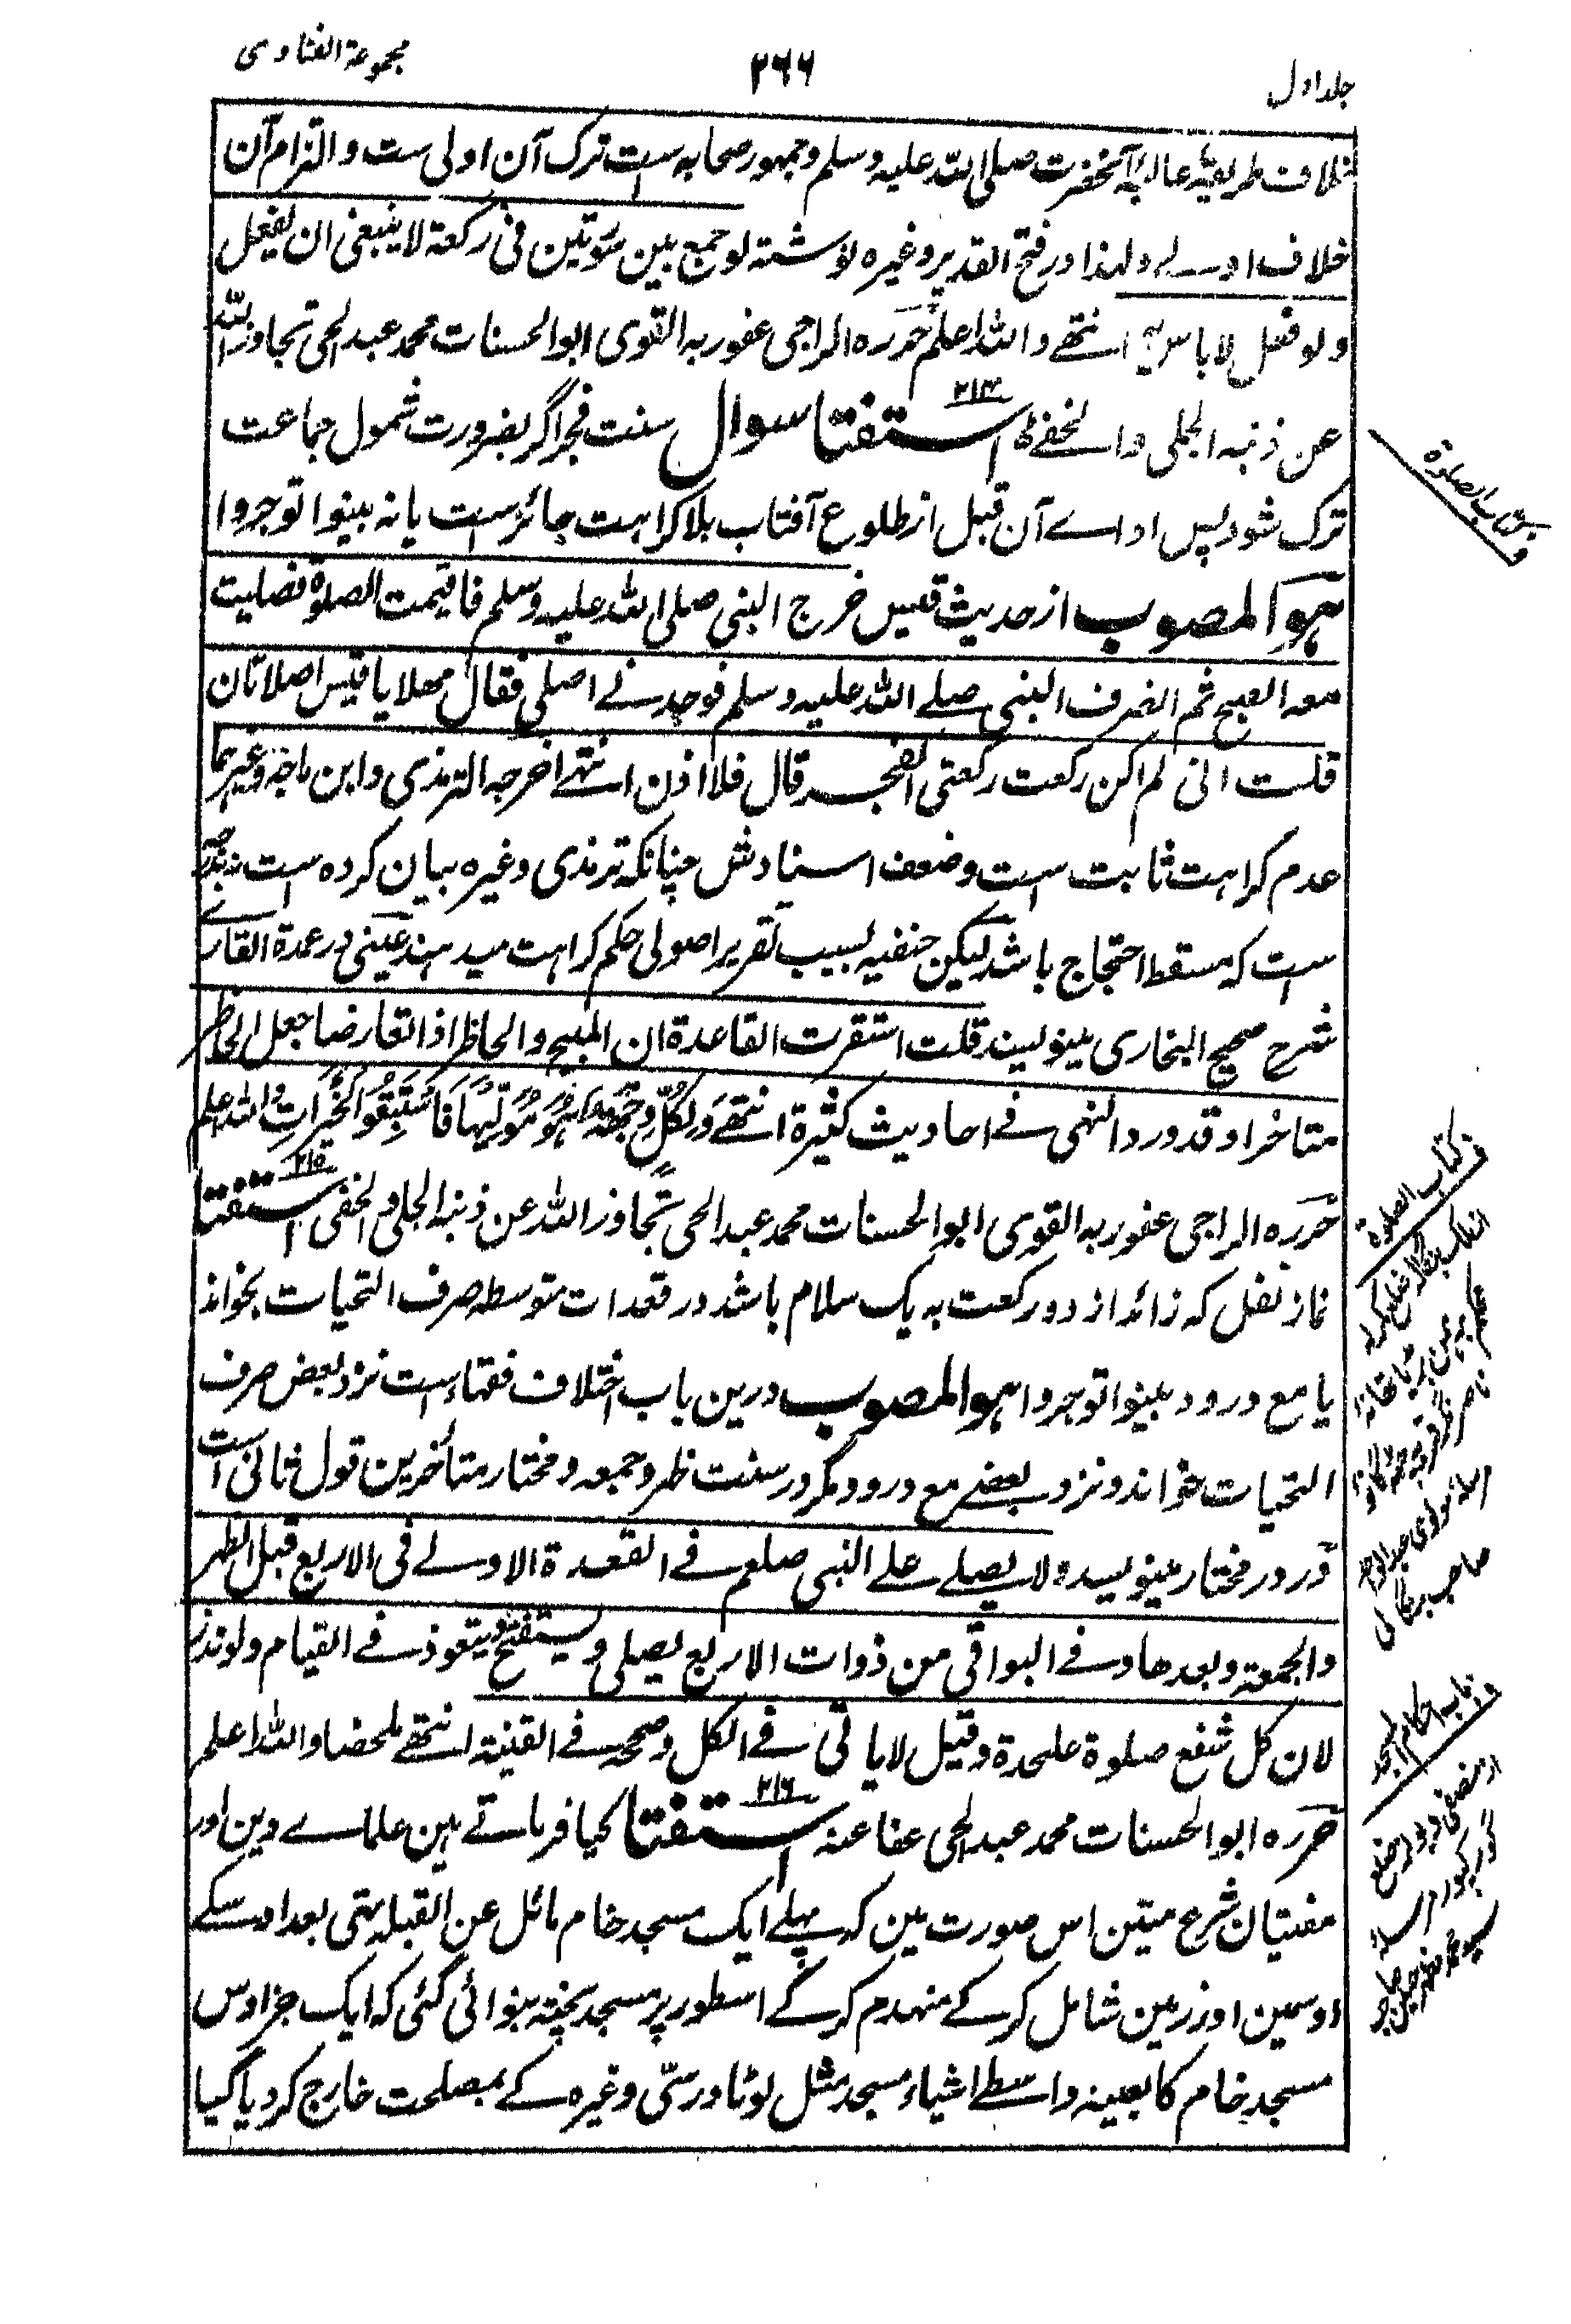 جلد اول
۲۶۶
مجموعۃ الفتاوی
خلاف طریقۂ عالیۂ آنحضرت صلی اللہ علیہ وسلم و جمہور صحابہ است ترک آن اولی ست والتزام آن
خلاف اولے ولہذا در فتح القدیر وغیرہ نوشتہ لو جمع بین سورتین فی رکعۃ لا ینبغی ان یفعل
ولو فعل لا باس بہ انتہے واللہ اعلم حررہ الراجی عفو ربہ القوی ابو الحسنات محمد عبد الحی تجاوز اللہ
عن ذنبہ الجلی والخفے استفتا ۲۱۴ سوال سنت فجر اگر بضرورت شمول جماعت
ترک شود پس اداے آن قبل از طلوع آفتاب بلا کراہت جائز ست یا نہ بینوا توجروا
ہو المصوب از حدیث قیس خرج النبی صلی اللہ علیہ وسلم فاقیمت الصلوۃ فصلیت
معہ الصبح ثم انصرف النبی صلے اللہ علیہ وسلم فوجدنے اصلی فقال مهلا یا قیس اصلاتان
قلت انی لم اکن رکعت رکعتی الفجر قال فلا اذن انتہے اخرجہ الترمذی وابن ماجہ وغیرہما
عدم کراہت ثابت است وضعف اسنادش چنانکہ ترمذی وغیرہ بیان کردہ است نہ
ست کہ مسقط احتجاج باشد لیکن حنفیہ بسبب تقریر اصولی حکم کراہت میدہند عینی در عمدۃ القارے
شرح صحیح البخاری مینویسند قلت استقرت القاعدۃ ان المبیح والحاظر اذا تعارضا جعل الحاظر
متاخرا وقد ورد النهی فے احادیث کثیرۃ انتہے وَلِكُلٍّ وِجْهَةٌ هُوَ مُوَلِّيهَا فَاسْتَبِقُوا الْخَيْرَاتِ واللہ اعلم
حررہ الراجی عفو ربہ القوی ابو الحسنات محمد عبد الحی تجاوز اللہ عن ذنبہ الجلی والخفی استفتا ۲۱۵
نماز نفل کہ زائد از دو رکعت بہ یک سلام باشد در قعدات متوسطہ صرف التحیات بخواند
یا مع درود بینوا توجروا ہو المصوب درین باب اختلاف فقہاء است نزد بعض صرف
التحیات خواند ونزد بعضے مع درود مگر در سنت ظہر وجمعہ ومختار متأخرین قول ثانی است
ودر در مختار مینویسد ولا یصلے علے النبی صلعم فے القعدۃ الاولے فی الاربع قبل الظهر
والجمعۃ وبعدها وفے البواقی من ذوات الاربع یصلی ویستفتح ویتعوذ فے القیام ولو نذر
لان کل شفع صلوۃ علحدۃ وقیل لا یاتی فے الکل وصححہ فے القنیۃ انتہے ملخصا واللہ اعلم
حررہ ابو الحسنات محمد عبد الحی عفا عنہ استفتا ۲۱۶ کیا فرماتے ہین علماے دین اور
مفتیان شرع متین اس صورت مین کہ پہلے ایک مسجد خام مائل عن القبلہ تہی بعد اوسکے
اوسمین اور زمین شامل کرکے منہدم کرکے اسطور پر مسجد پختہ بنوائی گئی کہ ایک جزا وس
مسجد خام کا بعینہ واسطے اشیاء مسجد مثل لوٹا ورسّی وغیرہ کے بمصلحت خارج کر دیا گیا
کتاب الصلوۃ
کتاب الصلوۃ